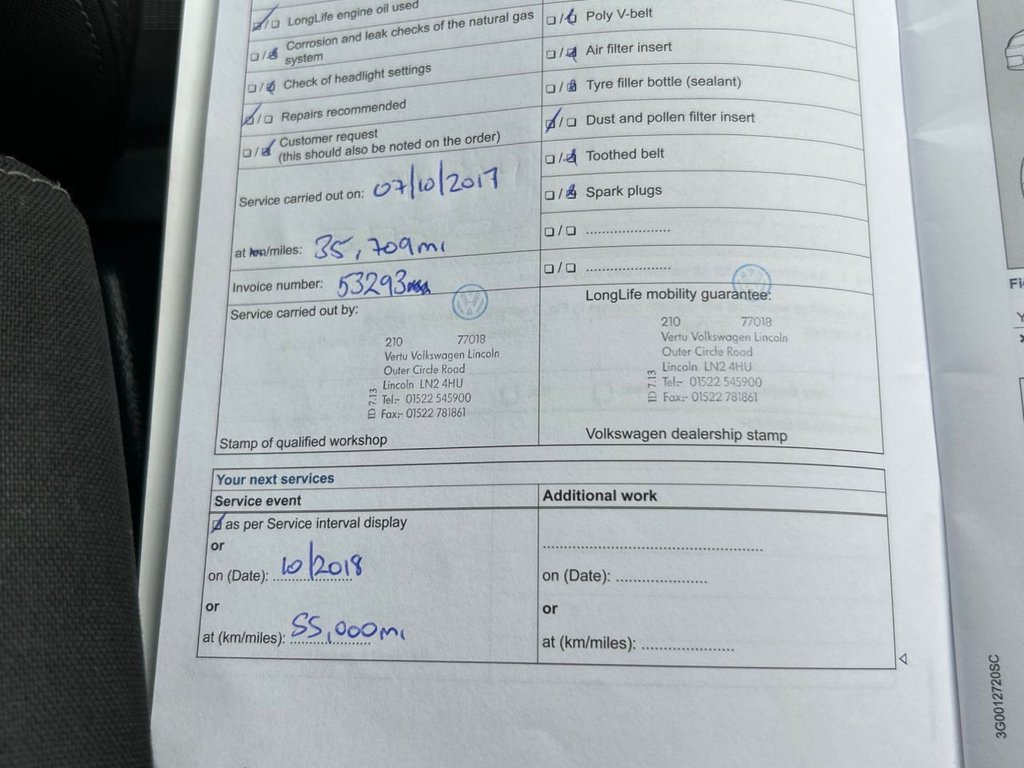 ☑/□ LongLife engine oil used
□/☑ Corrosion and leak checks of the natural gas
system
□/☑ Check of headlight settings
☑/□ Repairs recommended
□/☑ Customer request
(this should also be noted on the order)
Service carried out on: 07/10/2017
at km/miles: 35,709mi
Invoice number: 53293
Service carried out by:
210 77018
Vertu Volkswagen Lincoln
Outer Circle Road
Lincoln LN2 4HU
Tel:- 01522 545900
Fax:- 01522 781861
ID 7.13
Stamp of qualified workshop
□/☑ Poly V-belt
□/☑ Air filter insert
□/☑ Tyre filler bottle (sealant)
☑/□ Dust and pollen filter insert
□/☑ Toothed belt
□/☑ Spark plugs
□/□ ......................
□/□ ......................
LongLife mobility guarantee:
210 77018
Vertu Volkswagen Lincoln
Outer Circle Road
Lincoln LN2 4HU
Tel:- 01522 545900
Fax:- 01522 781861
ID 7.13
Volkswagen dealership stamp
Your next services
Service event
☑ as per Service interval display
or
on (Date): 10/2018
or
at (km/miles): 55,000mi
Additional work
......................................................
on (Date): ......................
or
at (km/miles): ......................
3G0012720SC